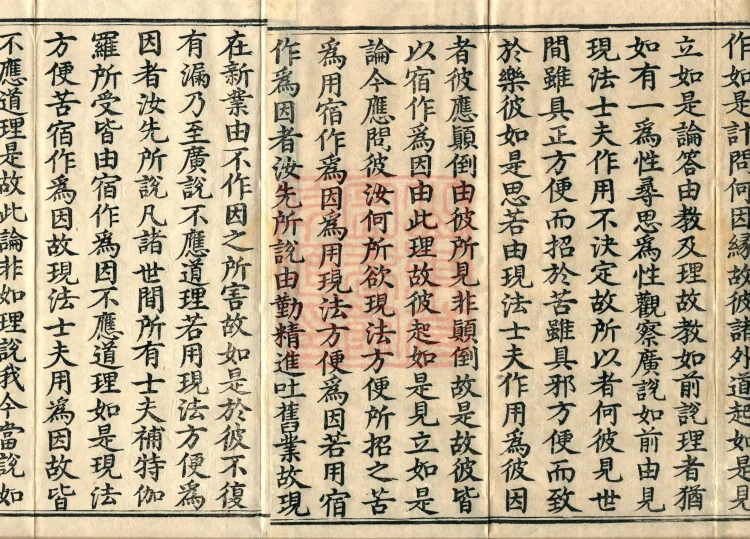 作如是計問何因緣故彼諸外道起如是見
立如是論答由教及理故教如前說理者猶
如有一爲性尋思爲性觀察廣說如前由見
現法士夫作用不決定故所以者何彼見世
間雖具正方便而招於苦雖具邪方便而致
於樂彼如是思若由現法士夫作用爲彼因
者彼應顛倒由彼所見非顛倒故是故彼皆
以宿作爲因由此理故彼起如是見立如是
論今應問彼汝何所欲現法方便所招之苦
爲用宿作爲因爲用現法方便爲因若用宿
作爲因者汝先所說由勤精進吐舊業故現
在新業由不作因之所害故如是於彼不復
有漏乃至廣說不應道理若用現法方便爲
因者汝先所說凡諸世間所有士夫補特伽
羅所受皆由宿作爲因不應道理如是現法
方便苦宿作爲因故現法士夫用爲因故皆
不應道理是故此論非如理說我今當說如